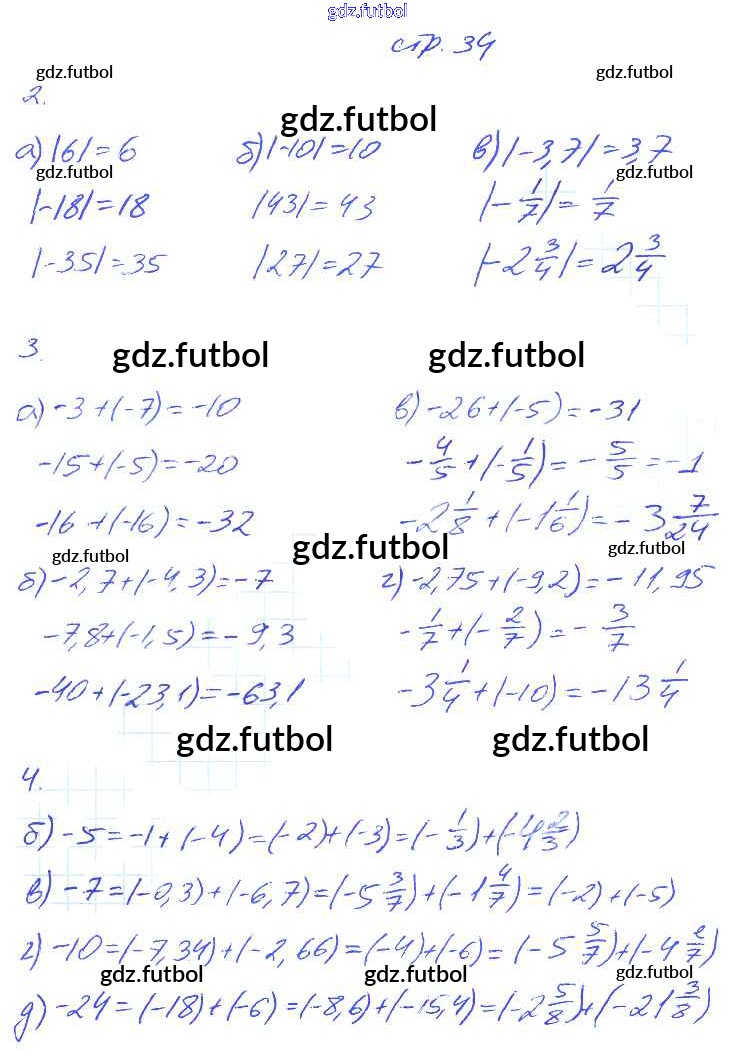 gdz.futbol
стр. 34
gdz.futbol gdz.futbol
2.
gdz.futbol
а) |6| = 6 б) |-10| = 10 в) |-3,7| = 3,7
gdz.futbol gdz.futbol
|-18| = 18 |43| = 43 |-1/7| = 1/7
|-35| = 35 |27| = 27 |-2 3/4| = 2 3/4
3.
gdz.futbol gdz.futbol
а) -3 + (-7) = -10 в) -26 + (-5) = -31
-15 + (-5) = -20 -4/5 + (-1/5) = -5/5 = -1
-16 + (-16) = -32 -2 1/8 + (-1 1/6) = -3 7/24
gdz.futbol gdz.futbol gdz.futbol
б) -2,7 + (-4,3) = -7 г) -2,75 + (-9,2) = -11,95
-7,8 + (-1,5) = -9,3 -1/7 + (-2/7) = -3/7
-40 + (-23,1) = -63,1 -3 1/4 + (-10) = -13 1/4
gdz.futbol gdz.futbol
4.
б) -5 = -1 + (-4) = (-2) + (-3) = (-1/3) + (-4 2/3)
в) -7 = (-0,3) + (-6,7) = (-5 3/7) + (-1 4/7) = (-2) + (-5)
г) -10 = (-7,34) + (-2,66) = (-4) + (-6) = (-5 5/7) + (-4 2/7)
gdz.futbol gdz.futbol gdz.futbol
д) -24 = (-18) + (-6) = (-8,6) + (-15,4) = (-2 5/8) + (-21 3/8)